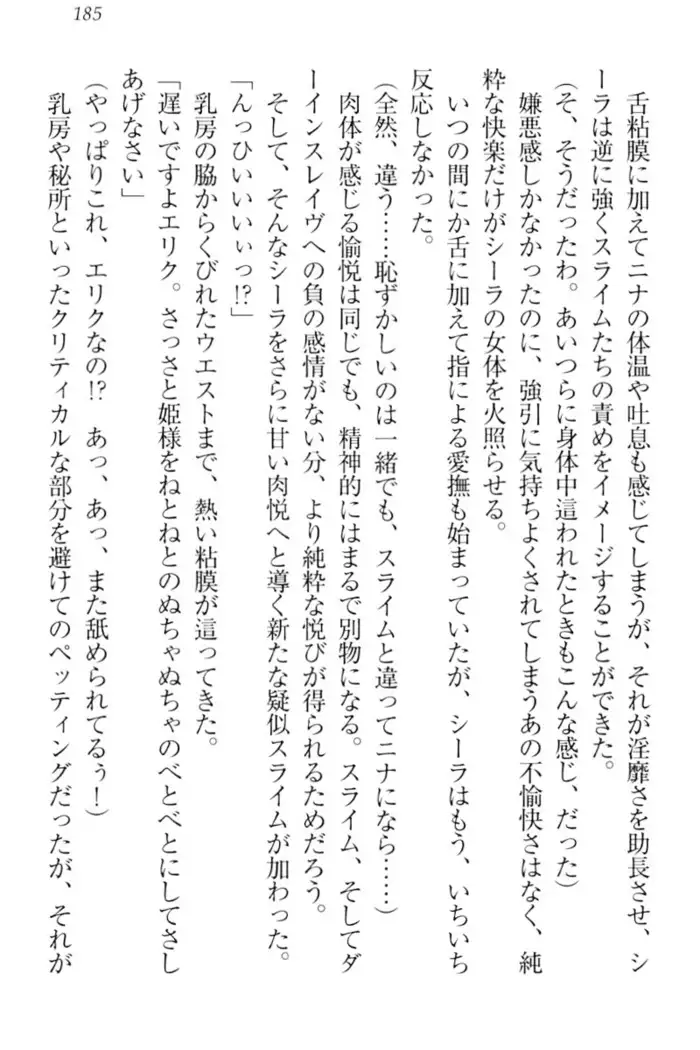 185
舌粘膜に加えてニナの体温や吐息も感じてしまうが、それが淫靡さを助長させ、シ
ーラは逆に強くスライムたちの責めをイメージすることができた。
(そ、そうだったわ。あいつらに身体中這われたときもこんな感じ、だった)
嫌悪感しかなかったのに、強引に気持ちよくされてしまうあの不愉快さはなく、純
粋な快楽だけがシーラの女体を火照らせる。
いつの間にか舌に加えて指による愛撫も始まっていたが、シーラはもう、いちいち
反応しなかった。
(全然、違う……恥ずかしいのは一緒でも、スライムと違ってニナになら……)
肉体が感じる愉悦は同じでも、精神的にはまるで別物になる。スライム、そしてダ
ーインスレイヴへの負の感情がない分、より純粋な悦びが得られるためだろう。
そして、そんなシーラをさらに甘い肉悦へと導く新たな疑似スライムが加わった。
「んっひいいいぃっ!?」
乳房の脇からくびれたウエストまで、熱い粘膜が這ってきた。
「遅いですよエリク。さっさと姫様をねとねとのぬちゃぬちゃのべとべとにしてさし
あげなさい」
(やっぱりこれ、エリクなの!? あっ、あっ、また舐められてるぅ!)
乳房や秘所といったクリティカルな部分を避けてのペッティングだったが、それが